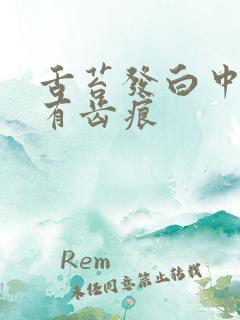 舌苔發白中
有齿痕
Rem
未经同意禁止转载